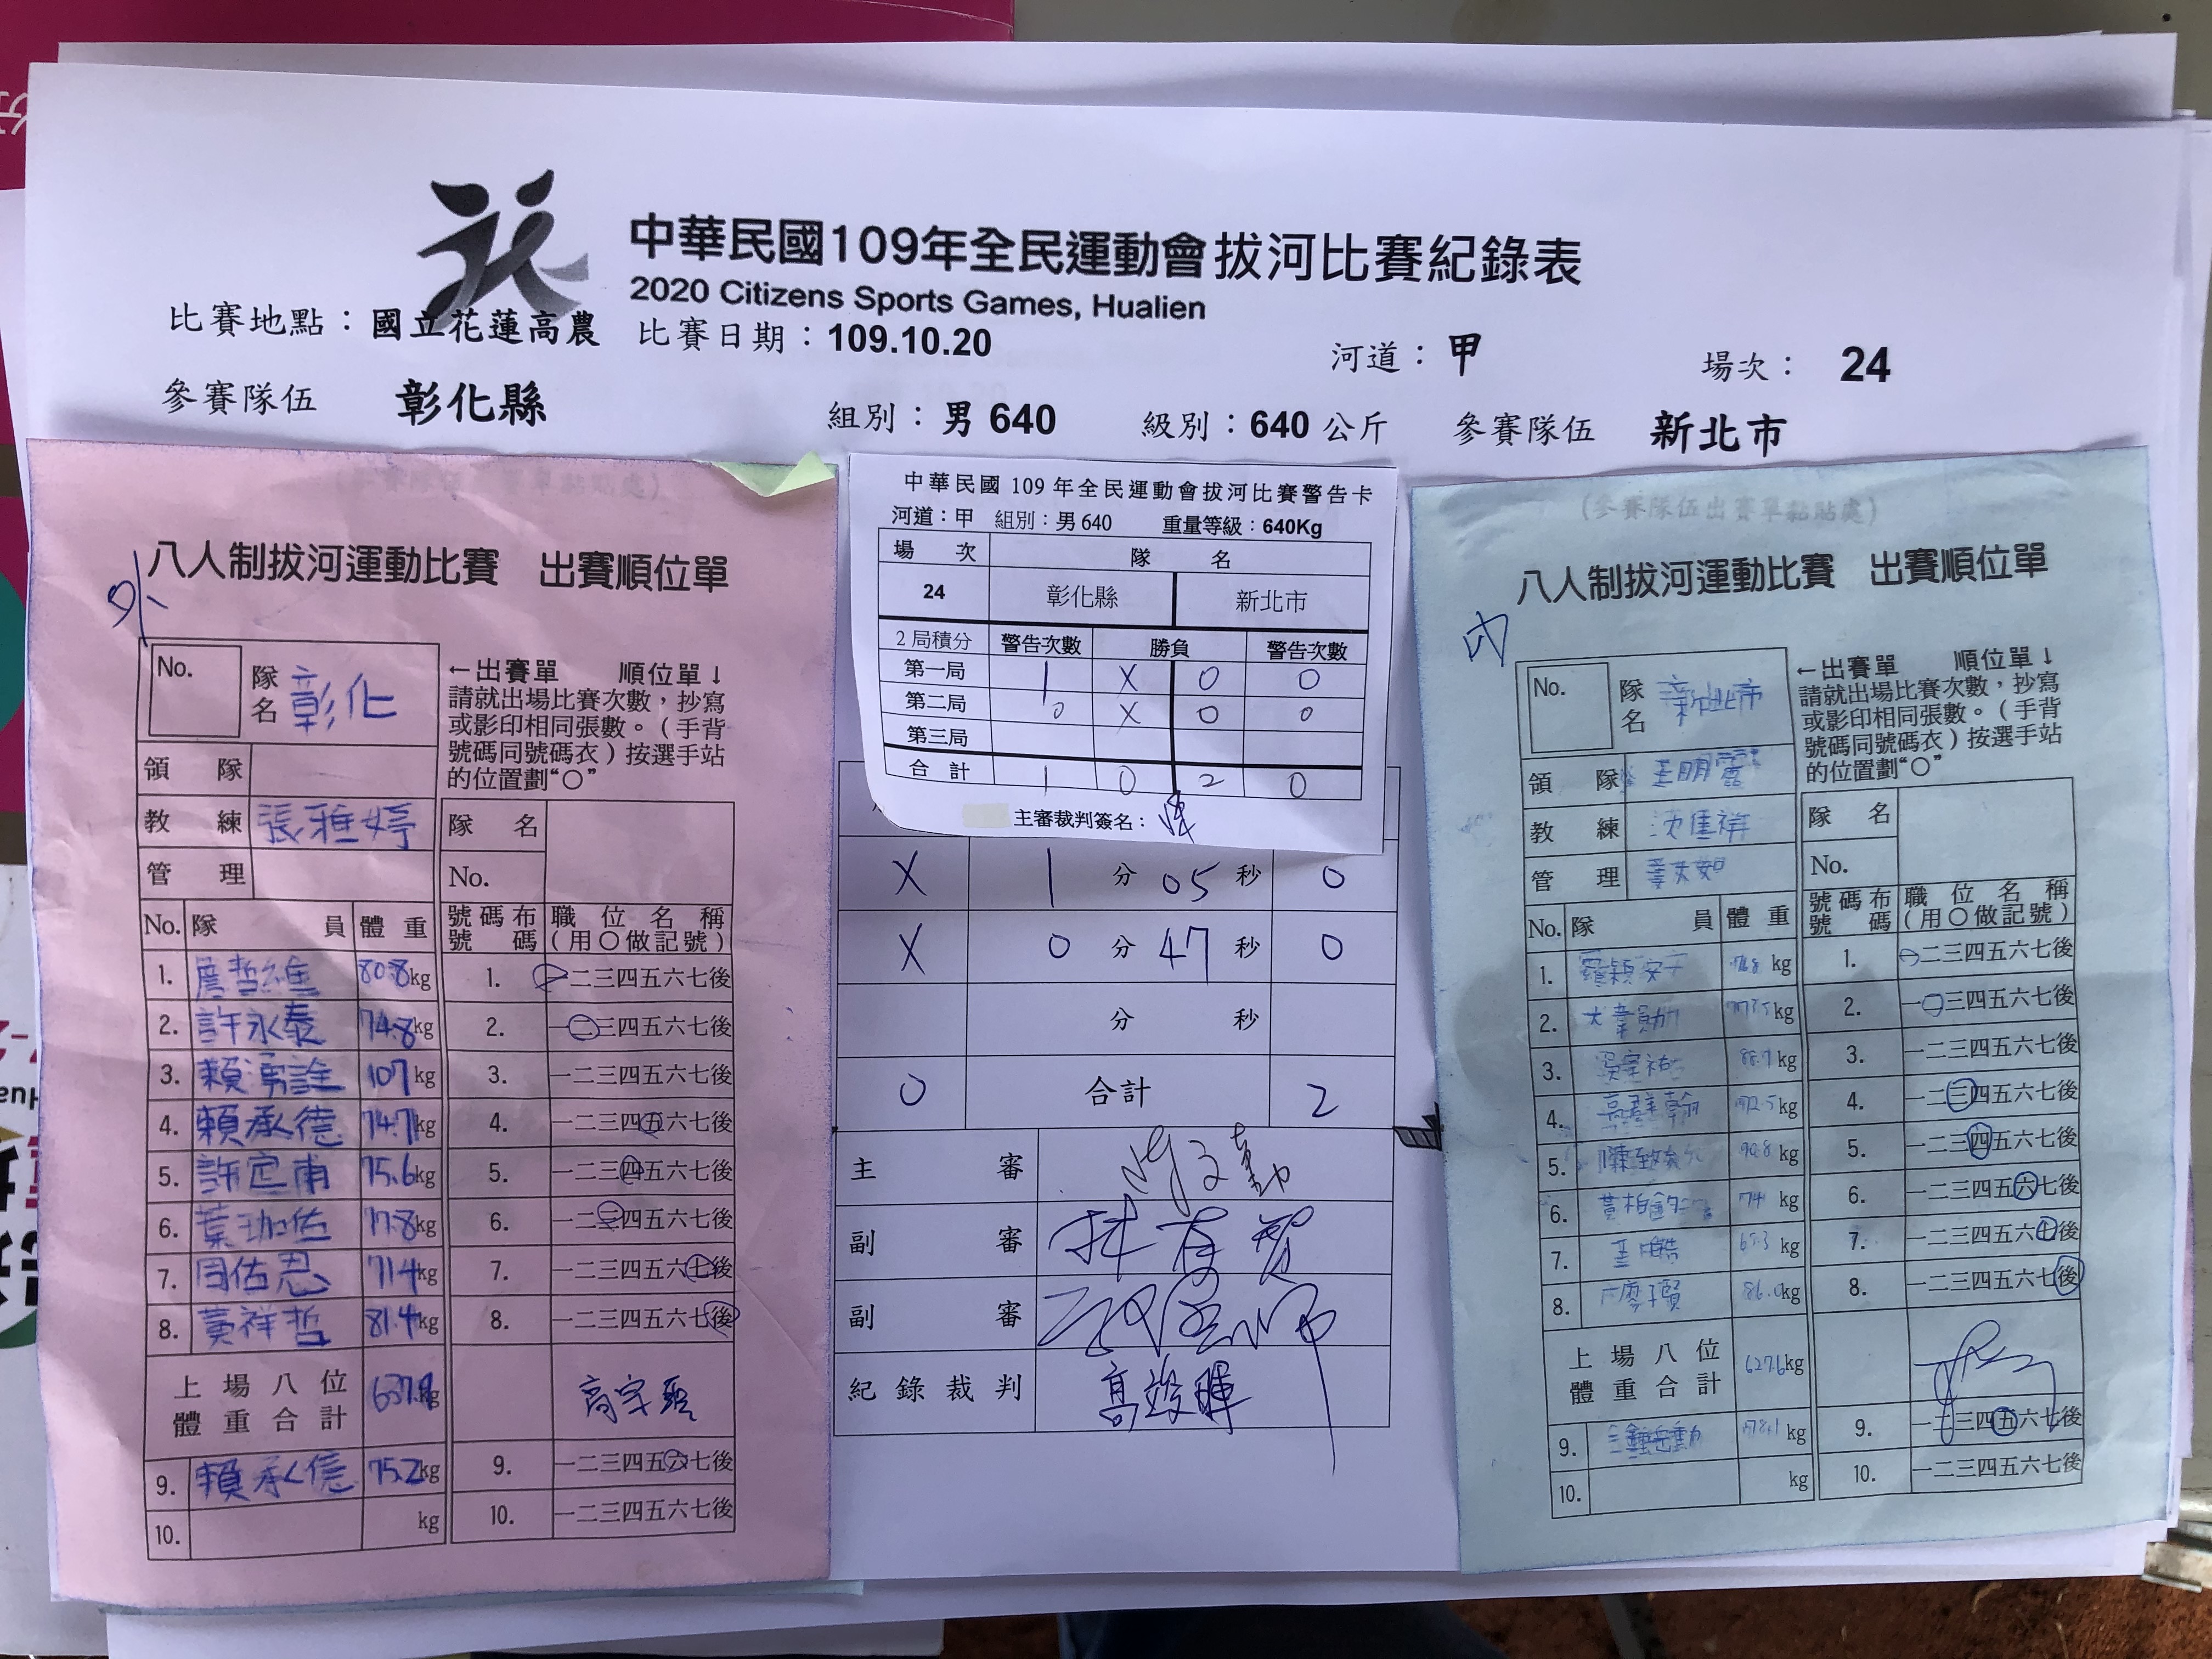 中華民國109年全民運動會拔河比賽紀錄表
2020 Citizens Sports Games, Hualien
比賽地點：國立花蓮高農 比賽日期：109.10.20 河道：甲 場次： 24
參賽隊伍 彰化縣 組別：男 640 級別：640 公斤 參賽隊伍 新北市
八人制拔河運動比賽 出賽順位單
外
No. 隊名 彰化
←出賽單 順位單↓
請就出場比賽次數，抄寫
或影印相同張數。（手背
號碼同號碼衣）按選手站
的位置劃“○”
領隊
教練 張雅婷
管理
隊名
No.
No. 隊員 體重 號碼布號碼 職位名稱（用○做記號）
1. 詹哲維 80.8kg 1. 一二三四五六七後
2. 許永泰 74.8kg 2. 一二三四五六七後
3. 賴勇詮 107kg 3. 一二三四五六七後
4. 賴承德 74.7kg 4. 一二三四五六七後
5. 許定甫 75.6kg 5. 一二三四五六七後
6. 葉珈佑 77.8kg 6. 一二三四五六七後
7. 周佑恩 71.4kg 7. 一二三四五六七後
8. 黃祥哲 81.4kg 8. 一二三四五六七後
上場八位體重合計 kg
9. 賴承億 75.2kg 9. 一二三四五六七後
10. kg 10. 一二三四五六七後
中華民國 109 年全民運動會拔河比賽警告卡
河道：甲 組別：男 640 重量等級：640Kg
場次 隊名
24 彰化縣 新北市
2 局積分 警告次數 勝負 警告次數
第一局 1 X 0 0
第二局 0 X 0 0
第三局
合計 1 0 2 0
主審裁判簽名：
X 1 分 05 秒 0
X 0 分 47 秒 0
分 秒
0 合計 2
主審
副審
副審
紀錄裁判
(參賽隊伍出賽單黏貼處)
八人制拔河運動比賽 出賽順位單
內
No. 隊名 新北市
←出賽單 順位單↓
請就出場比賽次數，抄寫
或影印相同張數。（手背
號碼同號碼衣）按選手站
的位置劃“○”
領隊
教練
管理
隊名
No.
No. 隊員 體重 號碼布號碼 職位名稱（用○做記號）
1. kg 1. 一二三四五六七後
2. kg 2. 一二三四五六七後
3. kg 3. 一二三四五六七後
4. kg 4. 一二三四五六七後
5. 90.8kg 5. 一二三四五六七後
6. 74 kg 6. 一二三四五六七後
7. kg 7. 一二三四五六七後
8. 86.0kg 8. 一二三四五六七後
上場八位體重合計 627.6kg
9. kg 9. 一二三四五六七後
10. kg 10. 一二三四五六七後